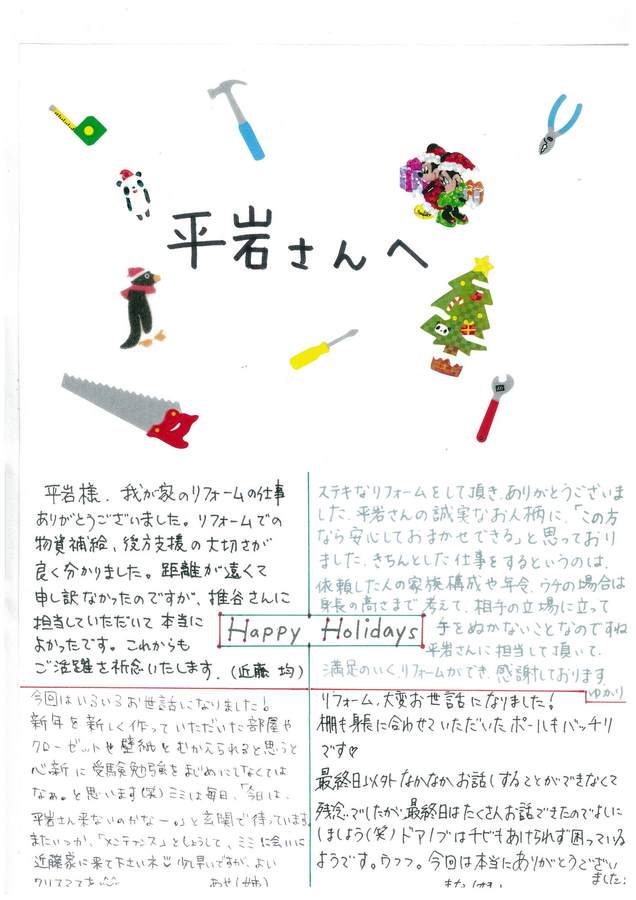 平岩さんへ
平岩様、我が家のリフォームの仕事
ありがとうございました。リフォームでの
物資補給、後方支援の大切さが
良く分かりました。距離が遠くて
申し訳なかったのですが、椎谷さんに
担当していただいて本当に
よかったです。これからも
ご活躍を祈念いたします。(近藤 均)
ステキなリフォームをして頂き、ありがとうございま
した。平岩さんの誠実なお人柄に、「この方
なら安心しておまかせできる」と思っており
ました。きちんとした仕事をするというのは、
依頼した人の家族構成や年令、ウチの場合は
身長の高さまで考えて、相手の立場に立って
手をぬかないことなのですね
平岩さんに担当して頂いて、
満足のいくリフォームができ、感謝しております。
ゆかり
Happy Holidays
今回はいろいろお世話になりました!
新年を新しく作っていただいた部屋や
クローゼットや壁紙とむかえられると思うと
心新に受験勉強をまじめにしてなくては
なぁ。と思います(笑)ミミは毎日、「今日は、
平岩さん来ないのかなー。」と玄関で待っています。
またいつか、「メンテナンス」としょうして、ミミに会いに
近藤家に来て下さいネ 少し早いですが、よい
クリスマスを
あや(姉)
リフォーム、大変お世話になりました!
棚も身長に合わせていただいたポールもバッチリ
です♡
最終日以外なかなかお話しすることができなくて
残念でしたが、最終日はたくさんお話できたのでよしに
しましょう(笑)ドアノブはチビもあけられず困っている
ようです。ウフフ。今回は本当にありがとうござい
ました!